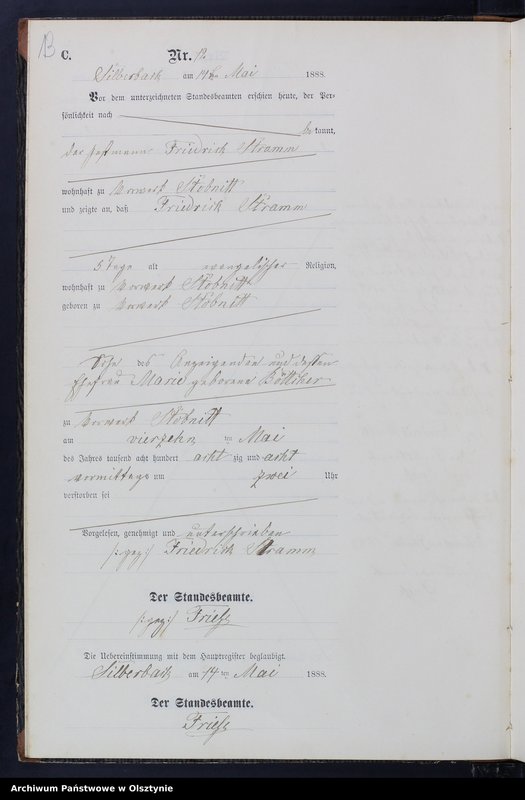 13
C.
Nr. 12
Silberbach am 14ten Mai 1888.
Vor dem unterzeichneten Standesbeamten erschien heute, der Per-
sönlichkeit nach
be kannt,
der Friedrich Stramm
wohnhaft zu Vorwerk Stobnitt
und zeigte an, daß Friedrich Stramm
5 Tage alt evangelischer Religion,
wohnhaft zu Vorwerk Stobnitt
geboren zu Vorwerk Stobnitt
Sohn des Anzeigenden und dessen
Ehefrau Marie geborene Böttcher
zu Vorwerk Stobnitt
am vierzehn ten Mai
des Jahres tausend acht hundert acht zig und acht
vormittags um zwei Uhr
verstorben sei
Vorgelesen, genehmigt und unterschrieben
(:gez:) Friedrich Stramm
Der Standesbeamte.
(:gez:) Friese
Die Uebereinstimmung mit dem Hauptregister beglaubigt.
Silberbach am 14 ten Mai 1888.
Der Standesbeamte.
Friese
Archiwum Państwowe w Olsztynie